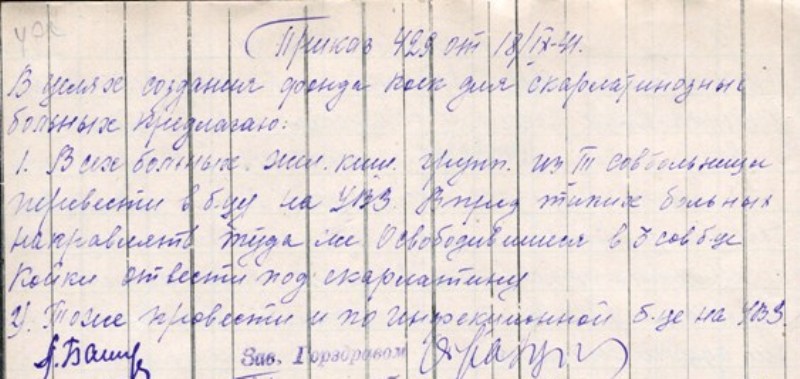 Приказ 429 от 18/IX-41.
В целях создания фонда коек для скарлатинозных
больных предлагаю:
1. Всех больных жел. киш. групп. из III совбольницы
перевести в б-цу на УВЗ. Впредь таких больных
направлять туда же Освободившиеся в 3 совб-це
койки отвести под скарлатину
2). Тоже провести и по Инфекционной б-це на УВЗ.
Зав. Горздравом